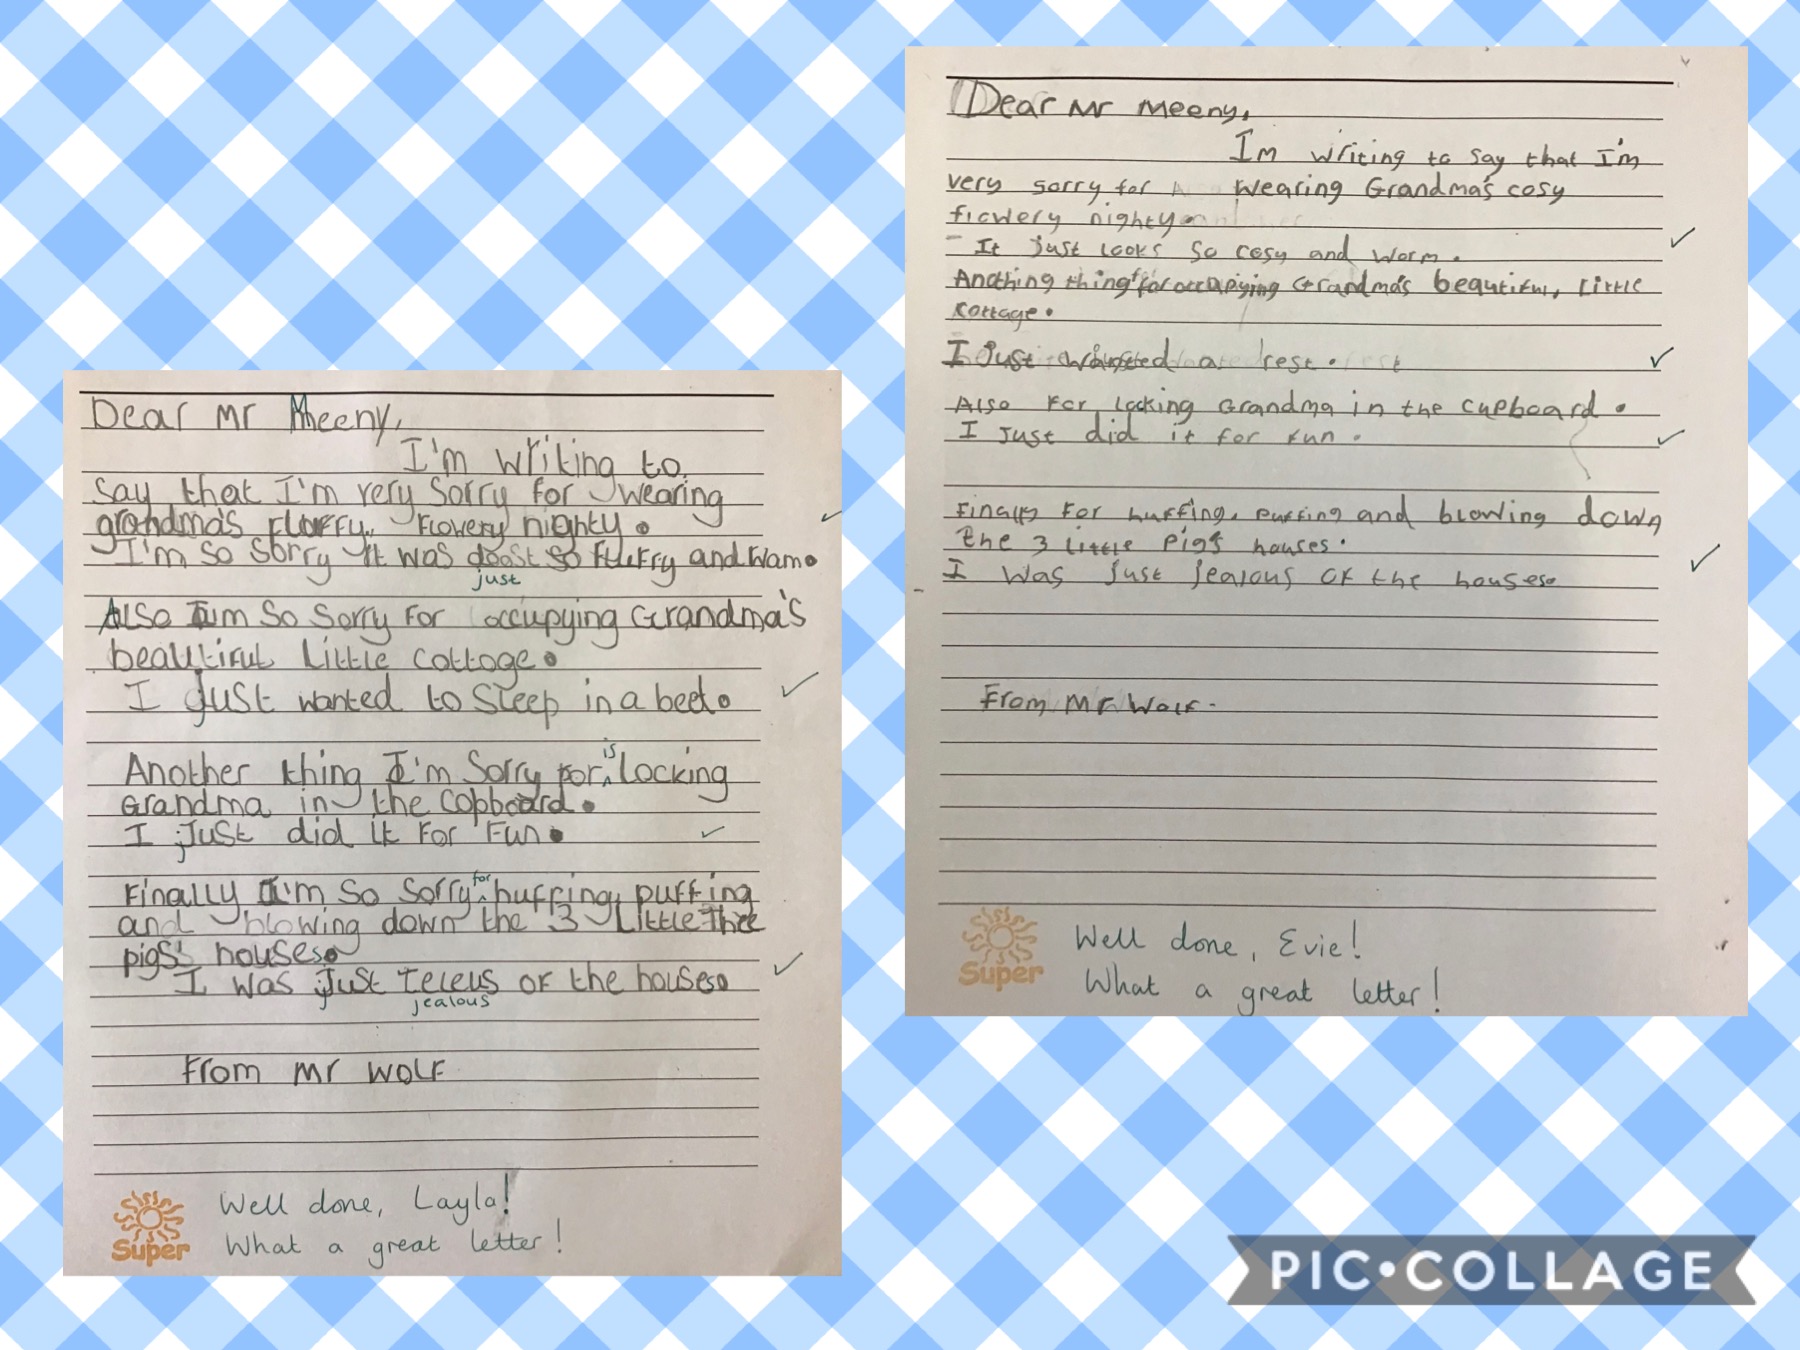 Dear Mr Meeny,
I'm writing to
say that I'm very sorry for wearing
grandma's fluffy, flowery nighty.
I'm so sorry it was so fluffy and wam.
just
Also I'm so sorry for occupying Grandma's
beautiful little cottoge.
I just wanted to sleep in a bed.
Another thing I'm sorry for is locking
Grandma in the copboard.
I just did it for fun.
Finally I'm so sorry for huffing, puffing
and blowing down the 3 little
pigs's houses.
I was just Teleus of the houses.
jealous
From Mr Wolf
Super
Well done, Layla!
What a great letter!
Dear Mr Meeny,
I'm writing to say that I'm
very sorry for wearing Grandma's cosy
flowery nighty.
It just looks so cosy and worm.
Anothing thing for occupying Grandma's beautiful, little
cottage.
I just wanted a rest.
Also for locking Grandma in the cupboard.
I just did it for fun.
Finally for huffing, puffing and blowing down
the 3 little pigs houses.
I was just jealous of the houses.
From Mr Wolf.
Super
Well done, Evie!
What a great letter!
PIC•COLLAGE